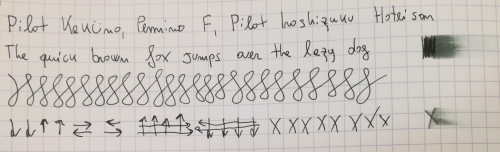 Pilot Kakuno, Pennino F, Pilot Iroshizuku Hotei son
The quick brown fox jumps over the lazy dog
X X X X X X X X X